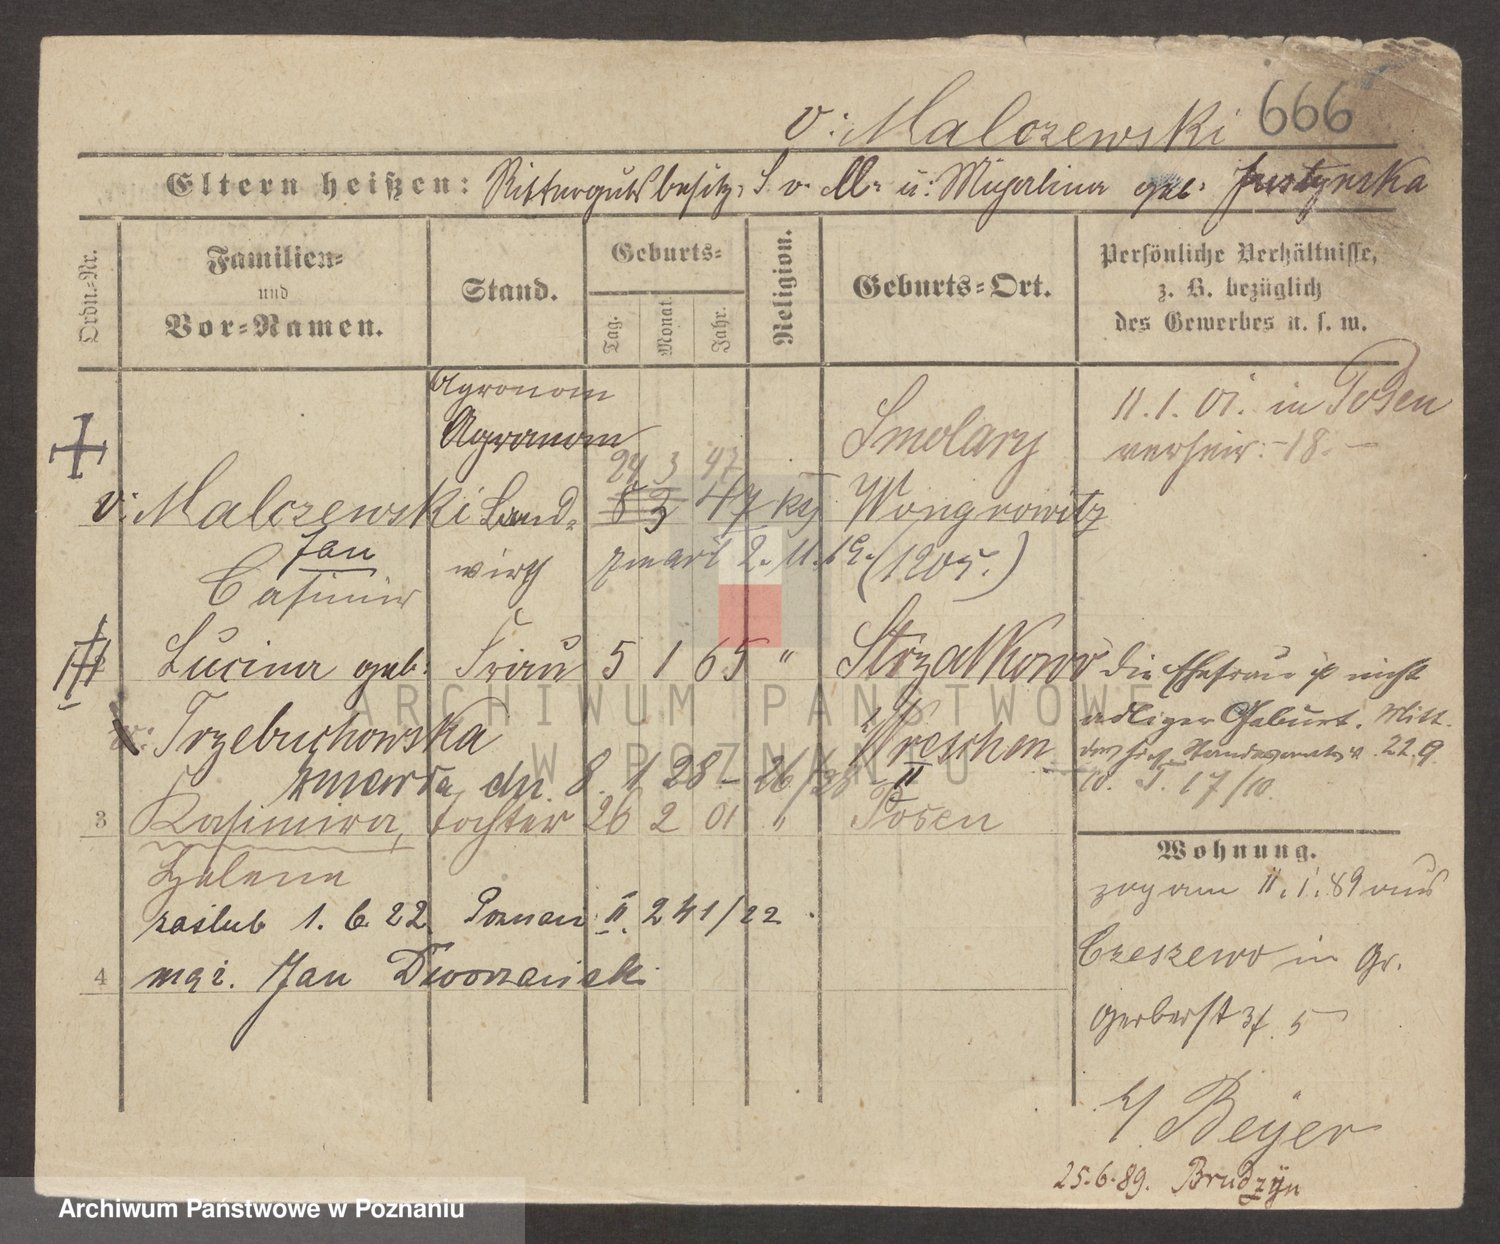 v. Malczewski 666
Eltern heißen: Rittergutsbesitz. S v. M. u. geb. Justynska
Ordn.-Nr.
Familien-
und
Vor-Namen.
Stand.
Geburts-
Tag.
Monat.
Jahr.
Religion.
Geburts-Ort.
Persönliche Verhältnisse,
z. B. bezüglich
des Gewerbes u. s. w.
Agronom
Agronom
24 3 47
v. Malczewski Land- 47 Smolary
Wongrowitz
11. 1. 01. in Posen
verheir. -18.-
Jan
Casimir
wirth
zmarł 2. 11. 19. (1205.)
2 Lucina geb. Frau 5 1 65 " Strzałkowo
v. Trzebuchowska Wreschen
Die Ehefrau ist nicht
adliger Geburt. Mitt.
des Standesamts v. 22.9
17/10.
zmarła dn. 8. 1 28 - 26/28 II
3 Kasimira, tochter 26 2 01 " Posen
Helena
zaślub 1. 6. 22. Poznań II. 241/22.
4 mgr. Jan
Wohnung.
zog am 11. 1. 89 aus
Czeszewo in Gr.
Gerberstr. 5
b/ Beyer
25. 6. 89. Brudzyn
ARCHIWUM PAŃSTWOWE
W POZNANIU
Archiwum Państwowe w Poznaniu